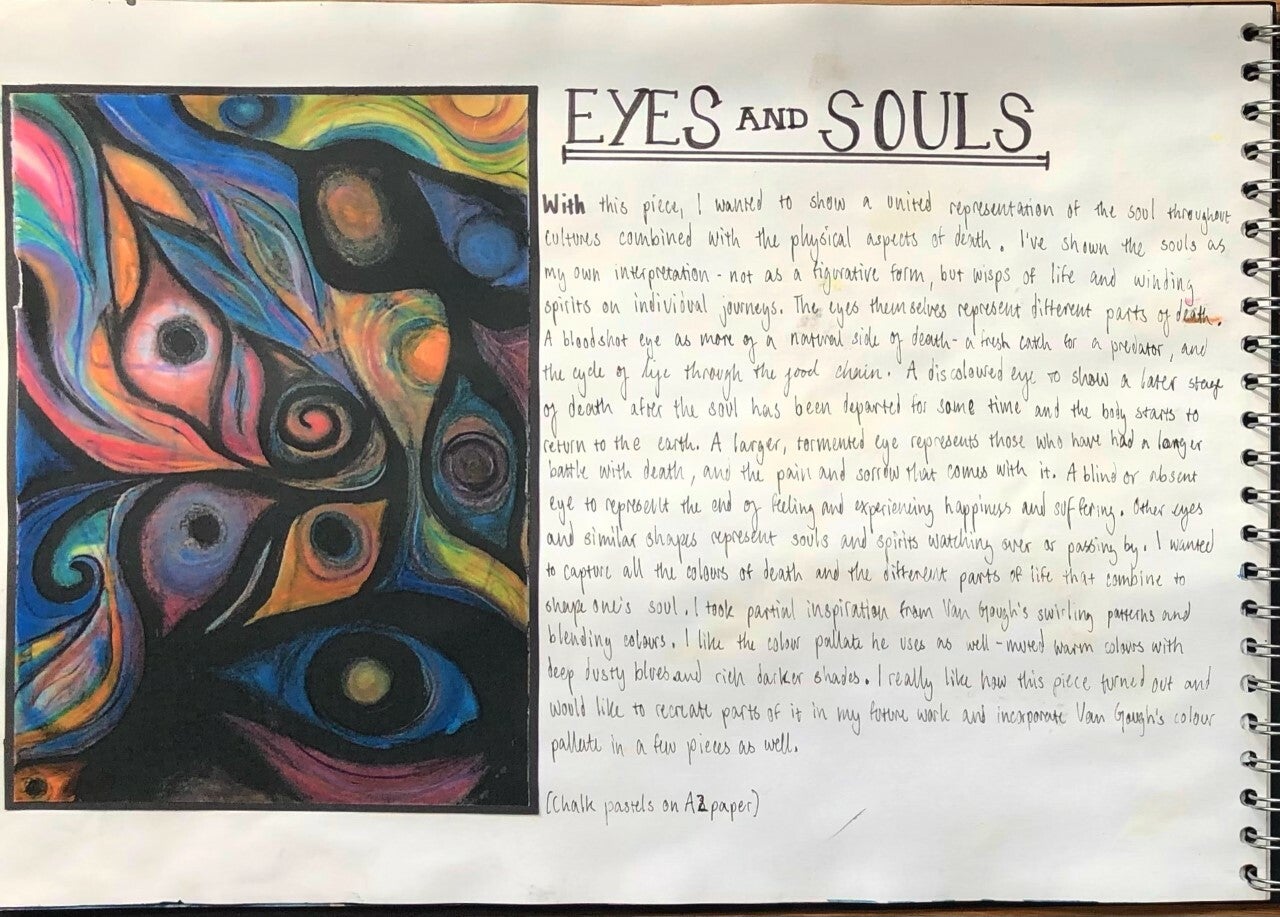 EYES AND SOULS
With this piece, I wanted to show a united representation of the soul throughout
cultures combined with the physical aspects of death. I've shown the souls as
my own interpretation - not as a figurative form, but wisps of life and winding
spirits on individual journeys. The eyes themselves represent different parts of death.
A bloodshot eye as more of a natural side of death - a fresh catch for a predator, and
the cycle of life through the food chain. A discoloured eye to show a later stage
of death after the soul has been departed for some time and the body starts to
return to the earth. A larger, tormented eye represents those who have had a longer
battle with death, and the pain and sorrow that comes with it. A blind or absent
eye to represent the end of feeling and experiencing happiness and suffering. Other eyes
and similar shapes represent souls and spirits watching over or passing by. I wanted
to capture all the colours of death and the different parts of life that combine to
shape one's soul. I took partial inspiration from Van Gough's swirling patterns and
blending colours. I like the colour pallate he uses as well - muted warm colours with
deep dusty blues and rich darker shades. I really like how this piece turned out and
would like to recreate parts of it in my future work and incorporate Van Gough's colour
pallate in a few pieces as well.
(Chalk pastels on A2 paper)